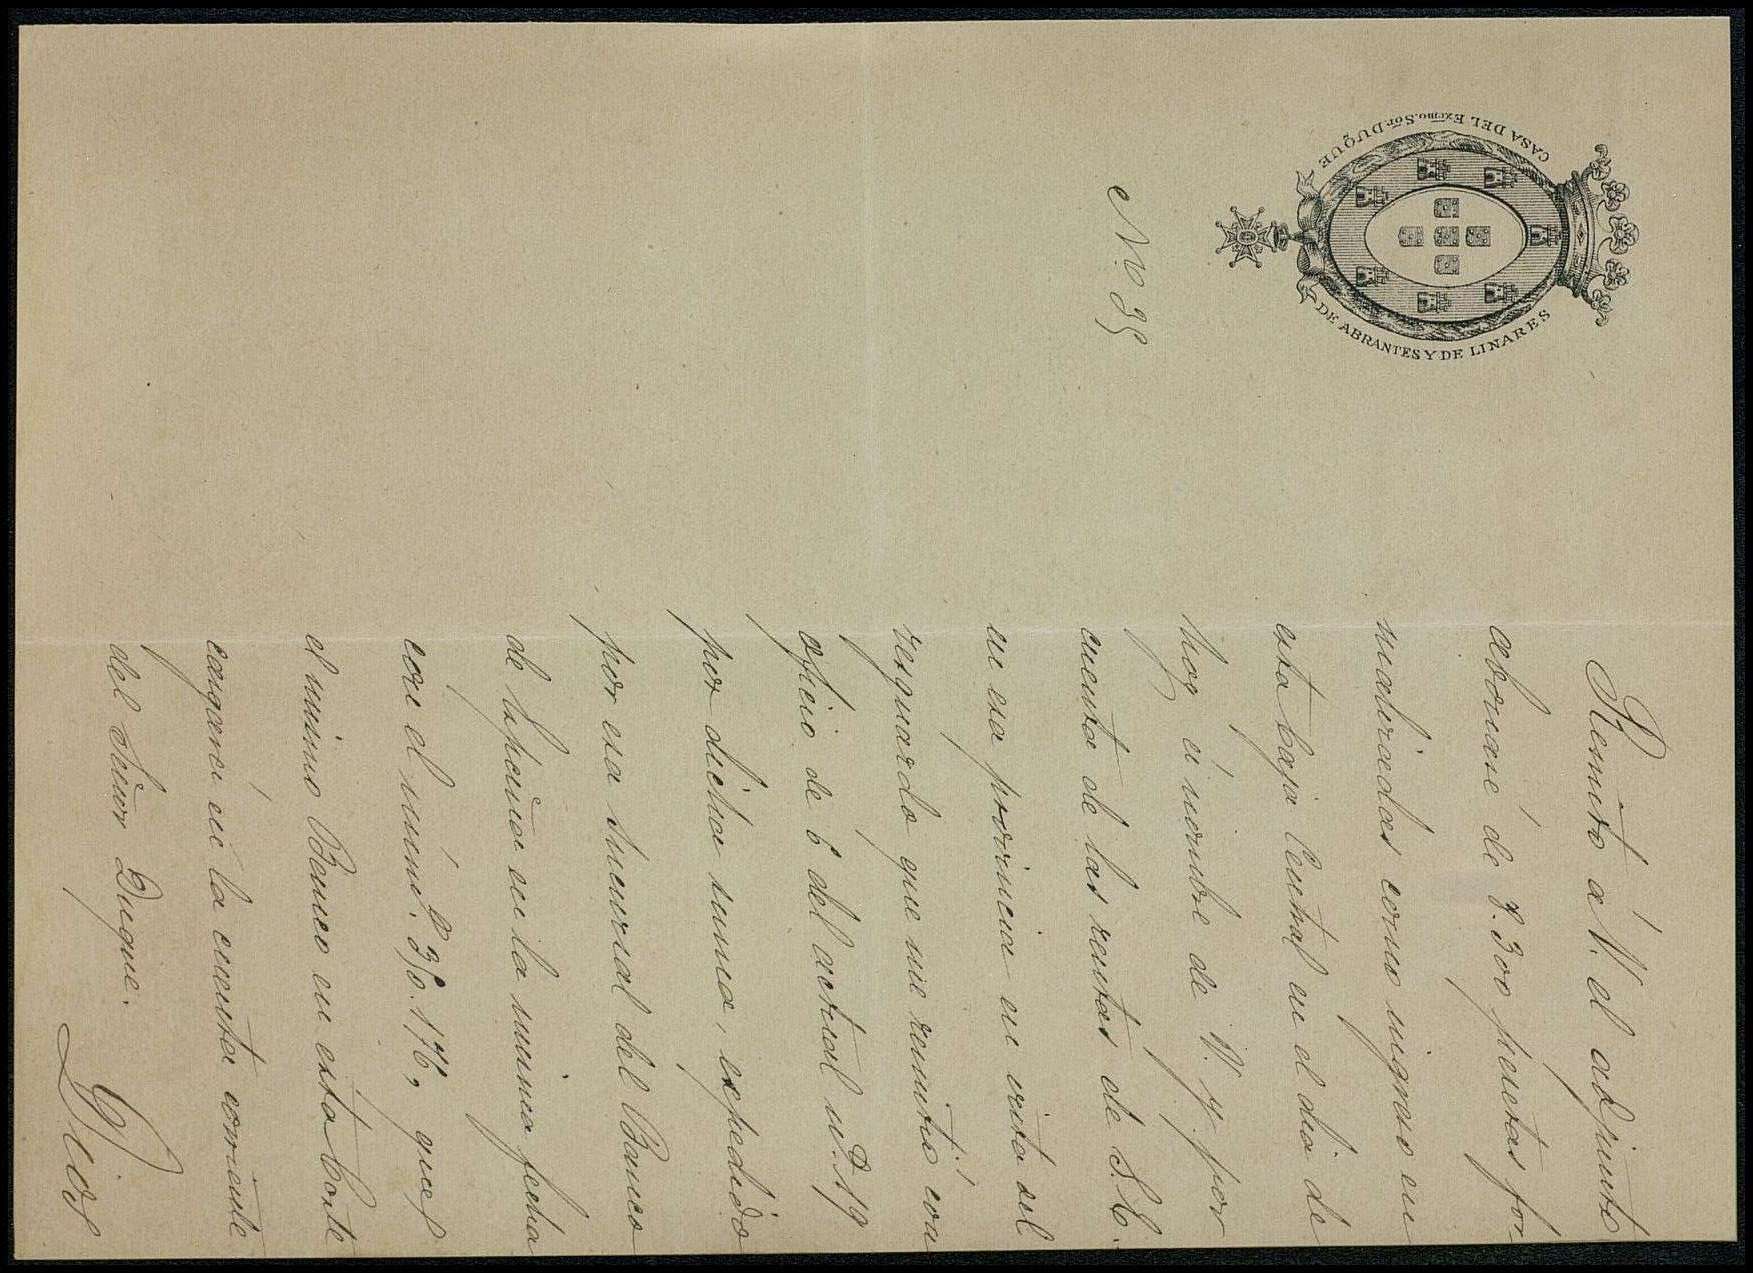 CASA DEL Exmo. Sor. DUQUE
DE ABRANTES Y DE LINARES
N.º 35
Remito á V. el adjunto
abonaré de 8.300 pesetas for
malizadas como ingreso en
esta Caja Central en el dia de
hoy á nombre de V. y por
cuenta de las rentas de S. E.
en esa provincia en vista del
resguardo que me remitió con
oficio de 6 del actual n.º 19
por dicha suma, expedido
por esa Sucursal del Banco
de España en la misma fecha
con el núm.º 176, que
el mismo Banco en esta Corte
cargará en la cuenta corriente
del Señor Duque.
Dios